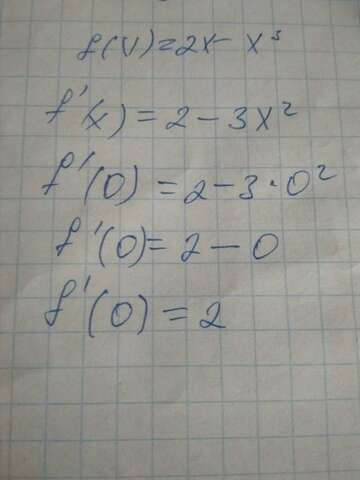 f(x)=2x-x³
f'(x)=2-3x²
f'(0)=2-3·0²
f'(0)=2-0
f'(0)=2